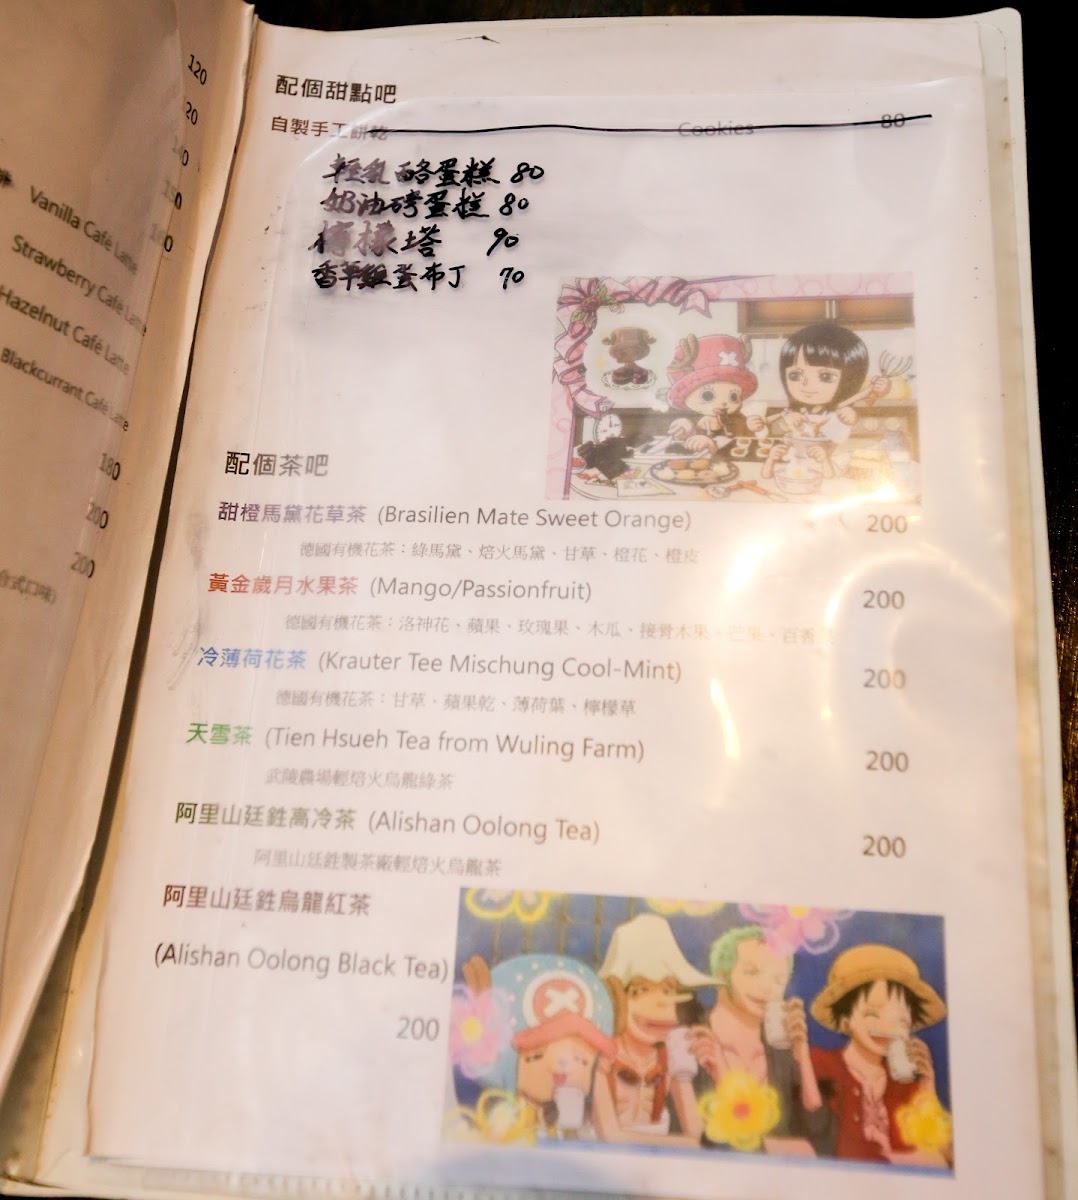 120
20
180
Vanilla Café Latte
Strawberry Café Latte
Hazelnut Café Latte
Blackcurrant Café Latte
180
200
200
配個甜點吧
自製手工餅乾 Cookies 80
輕乳酪蛋糕 80
奶油磅蛋糕 80
檸檬塔 90
香草雞蛋布丁 70
配個茶吧
甜橙馬黛花草茶 (Brasilien Mate Sweet Orange) 200
德國有機花茶：綠馬黛、焙火馬黛、甘草、橙花、橙皮
黃金歲月水果茶 (Mango/Passionfruit) 200
德國有機花茶：洛神花、蘋果、玫瑰果、木瓜、接骨木果、芒果、百香
冷薄荷花茶 (Krauter Tee Mischung Cool-Mint) 200
德國有機花茶：甘草、蘋果乾、薄荷葉、檸檬草
天雪茶 (Tien Hsueh Tea from Wuling Farm) 200
武陵農場輕焙火烏龍綠茶
阿里山廷鉎高冷茶 (Alishan Oolong Tea) 200
阿里山廷鉎製茶廠輕焙火烏龍茶
阿里山廷鉎烏龍紅茶
(Alishan Oolong Black Tea)
200